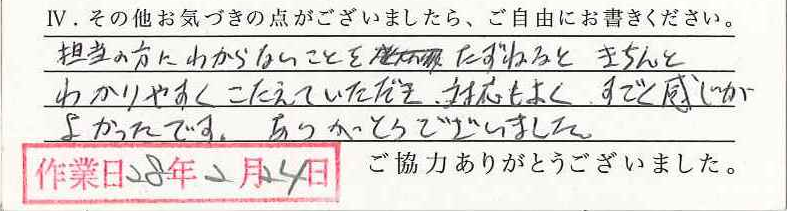 Ⅳ．その他お気づきの点がございましたら、ご自由にお書きください。
担当の方にわからないことを たずねると きちんと
わかりやすく こたえていただき、対応もよく すごく感じが
よかったです。 ありがとうございました。
作業日28年2月24日
ご協力ありがとうございました。